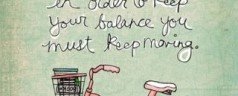 er order to keep
your balance you
must keep moving.